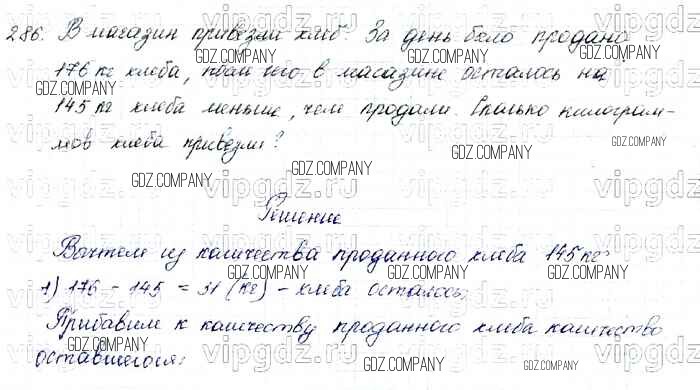 286. В магазин привезли хлеб. За день было продано
176 кг хлеба, после чего в магазине осталось на
145 кг хлеба меньше, чем продали. Сколько килограм-
мов хлеба привезли?
Решение
Вычтем из количества проданного хлеба 145 кг:
1) 176 - 145 = 31 (кг) - хлеба осталось;
Прибавим к количеству проданного хлеба количество
оставшегося: